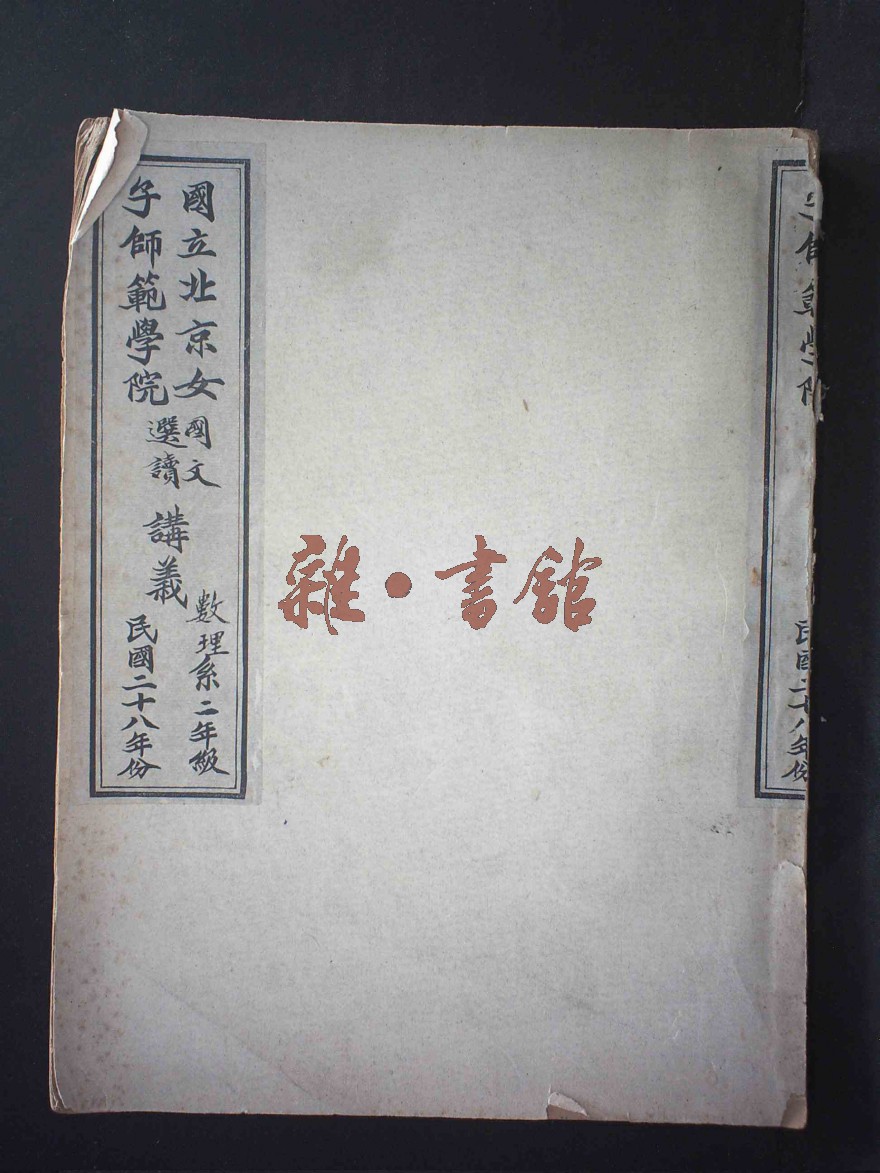 國立北京女
子師範學院
國文
選讀
講義
數理系二年級
民國二十八年份
雜·書館
民國二十八年份